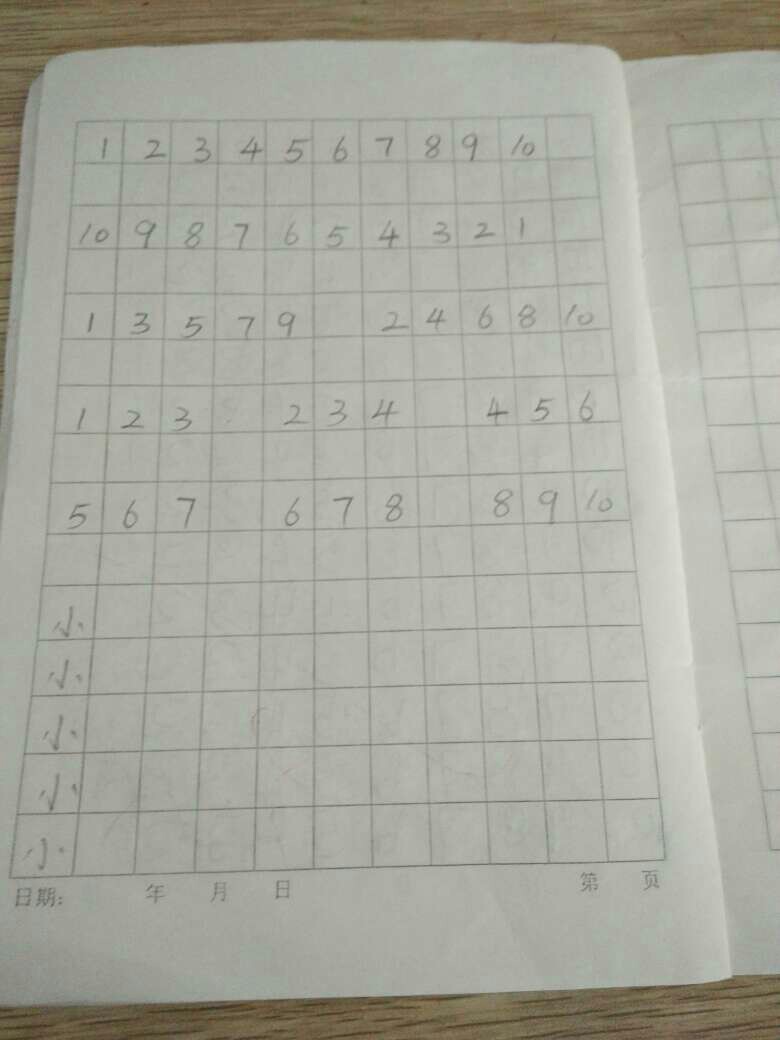 1 2 3 4 5 6 7 8 9 10
10 9 8 7 6 5 4 3 2 1
1 3 5 7 9 2 4 6 8 10
1 2 3 2 3 4 4 5 6
5 6 7 6 7 8 8 9 10
小
小
小
小
小
日期: 年 月 日 第 页